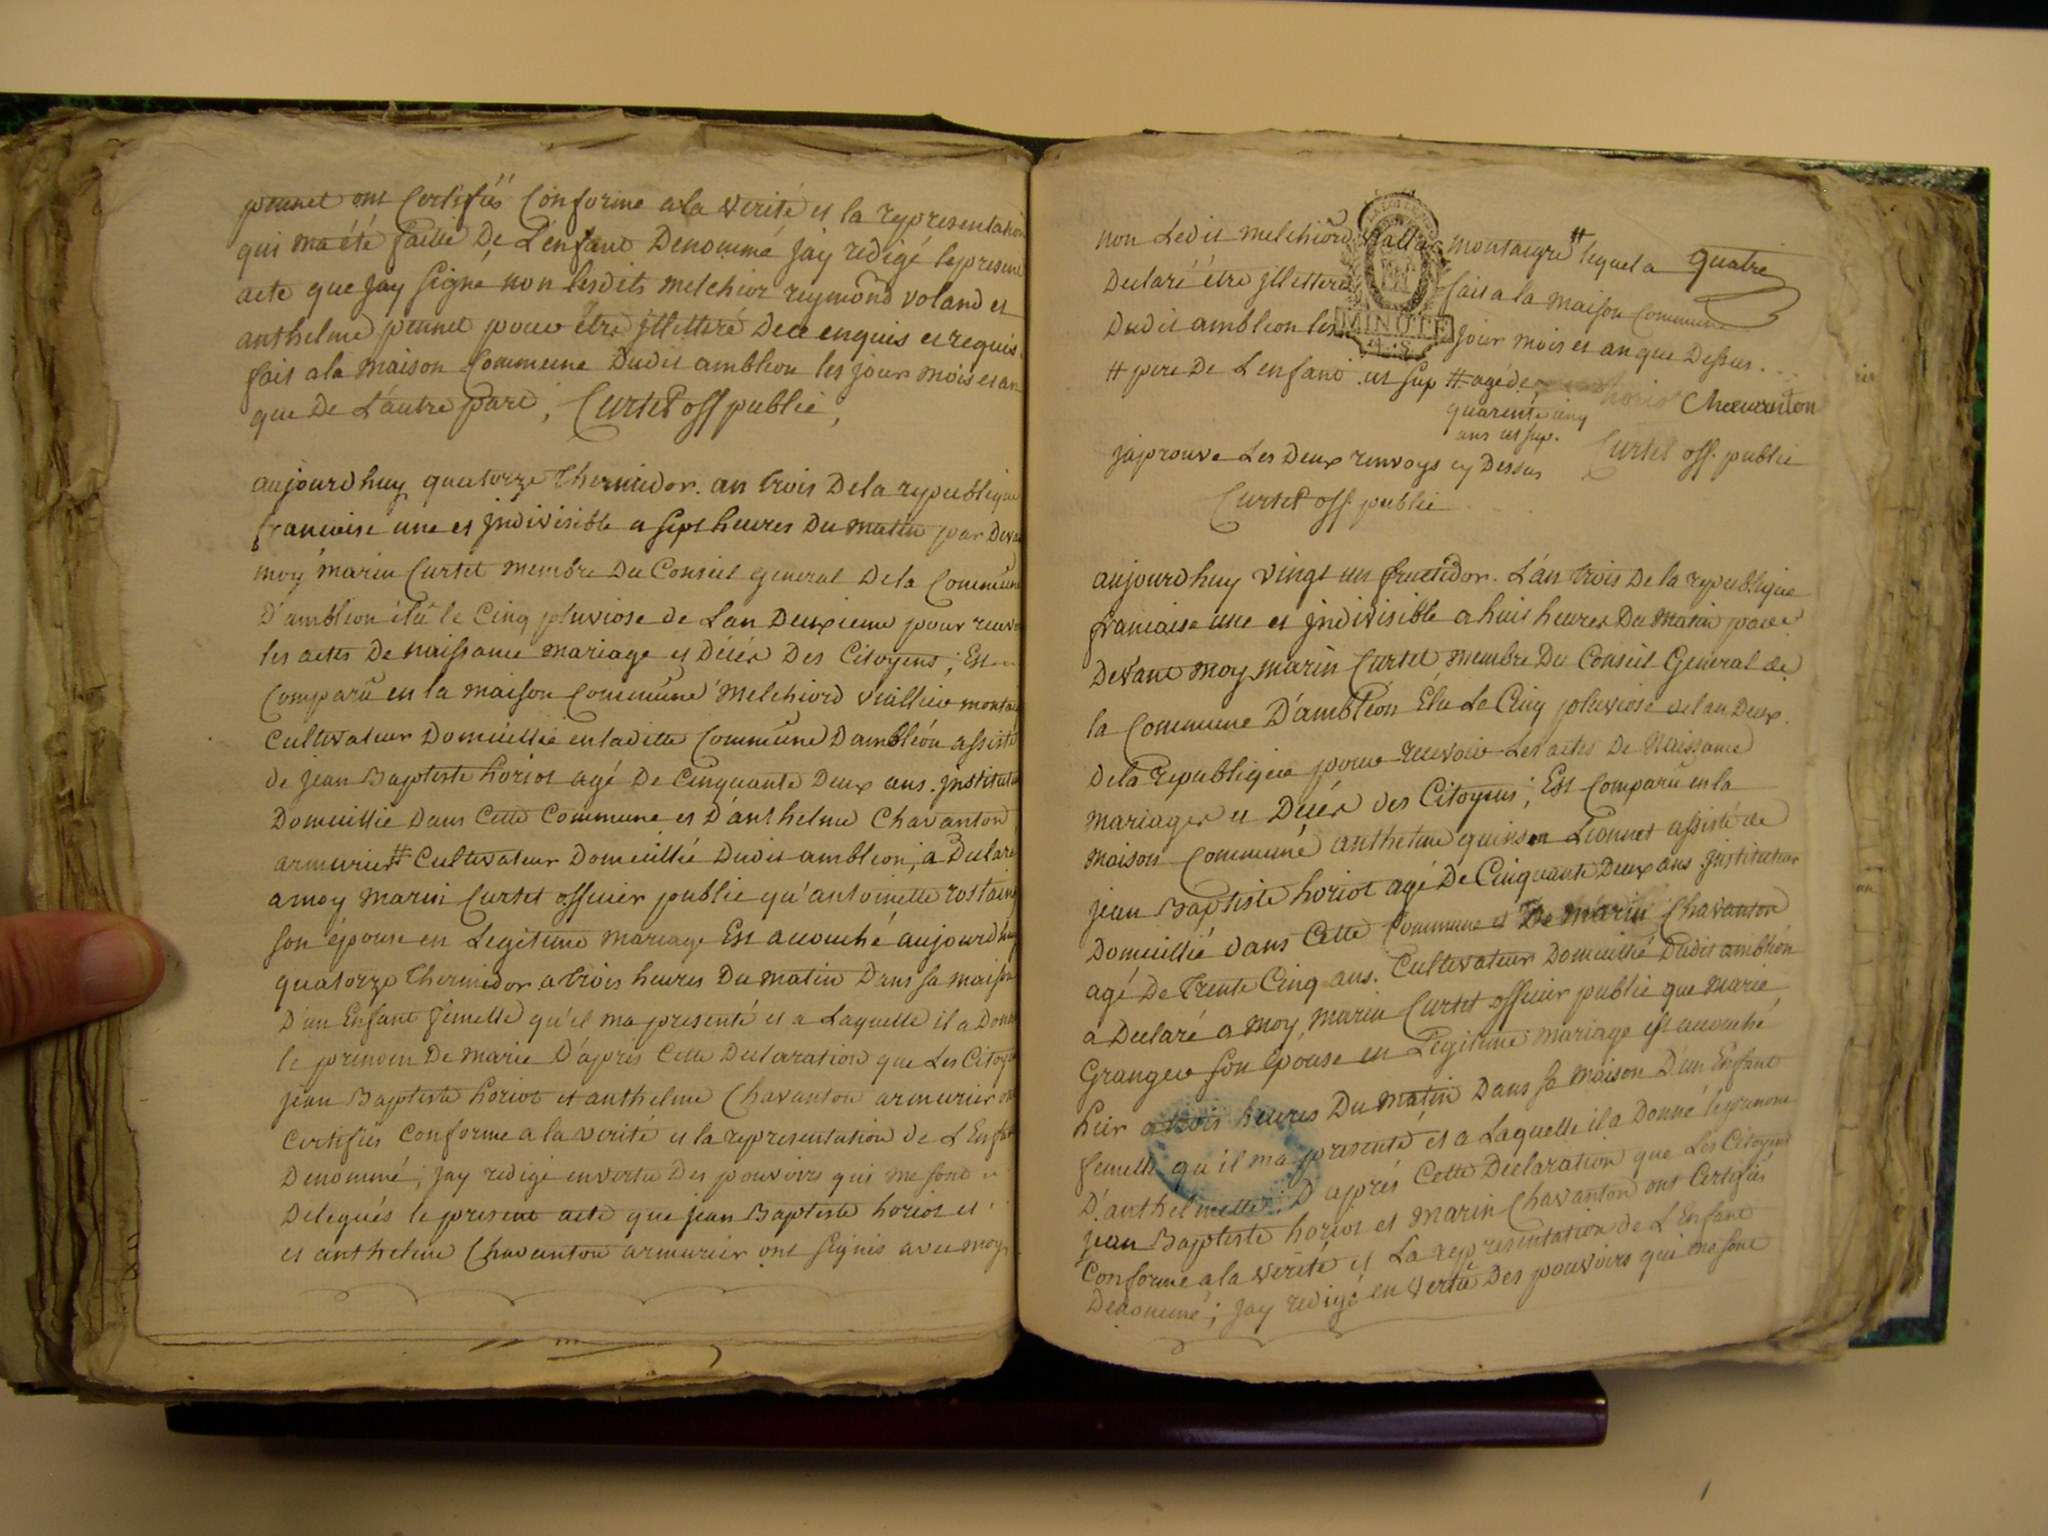 prunet ont Certifiés Conforme a la verité et la representation
qui ma été faitte De L'enfant Denommé jay redigé le present
acte que jay signé non lesdits melchior reymond voland et
anthelme prunet pour être jllitteré De ce enquis et requis
fait a la maison Commune Dudit ambleon les jour mois et an
que De L'autre part, Curtet off public,
aujourdhuy quatorze Thermidor. an trois De la republique
francaise une et jndivisible a sept heures Du matin par Deva
moy marin Curtet membre Du Conseil general De la Commune
D'ambleon élû le Cinq pluviose de L'an Deuxieme pour recevo
les actes De naissance mariage et Décés Des Citoyens; Est
Comparû en la maison Commune melchiord viallier monta
Cultivateur Domicillié en laditte Commune D'ambléon assisté
de jean Baptiste horiot agé De Cinquante Deux ans. jnstitut
Domicillié Dans Cette Commune et D'anthelme Chavanton
armurier # Cultivateur Domicillié Dudit ambleon; a Declaré
a moy marin Curtet officier public qu'antoinette rostain
son épouse en Legitime mariage Est acouché aujourdhuy
quatorze Thermidor a trois heures Du matin Dans sa maison
D'un Enfant femelle qu'il ma presenté et a Laquelle il a Donn
le prenom De marie D'après Cette Declaration que Les Citoy
jean Baptiste horiot et anthelme Chavanton armurier on
Certifiés Conforme a la verité et la representation de L'Enfan
Denommé; jay redigé en vertu Des pouvoirs qui me sont
Delegués le present acte que jean Baptiste horiot et
et anthelme Chavanton armurier ont signés avec moy
non Ledit melchiord montaigre # lequel a quatre
Declaré être jllitteré fait a la maison Commune
Dudit ambleon les jour mois et an que Dessus
# pere De L'enfant. et sup # agé de
quarente cinq
ans et sup. horiot Chavanton
japrouve Les Deux renvoys cy Dessus Curtet off. public
Curtet off. public
MINUTE
aujourdhuy vingt un fructidor. L'an trois De la republique
francaise une et jndivisible a huit heures Du matin par
Devant moy marin Curtet membre Du Conseil General de
la Commune D'ambléon Élu Le Cinq pluviose de l'an Deux
De la republique pour recevoir Les actes De Naissance
mariages et Décés des Citoyens; Est Comparû en la
maison Commune anthelme quinson Lionnet assisté de
jean Baptiste horiot agé De Cinquante Deux ans jnstituteur
Domicillié dans Cette Commune et De marin Chavanton
agé De Trente Cinq ans. Cultivateur Domicillié Dudit ambléon
a Declaré a moy marin Curtet officier public que marie
Granger son épouse en Legitime mariage est acouché
hier a trois heures Du matin Dans sa maison D'un Enfant
femelle qu'il ma presenté et a Laquelle il a Donné le prenom
D'anthelmette; D'après Cette Declaration que Les Citoyens
jean Baptiste horiot et marin Chavanton ont Certifiés
Conforme a la verité et La representation de L'Enfant
Denommé; jay redigé en vertu Des pouvoirs qui me sont